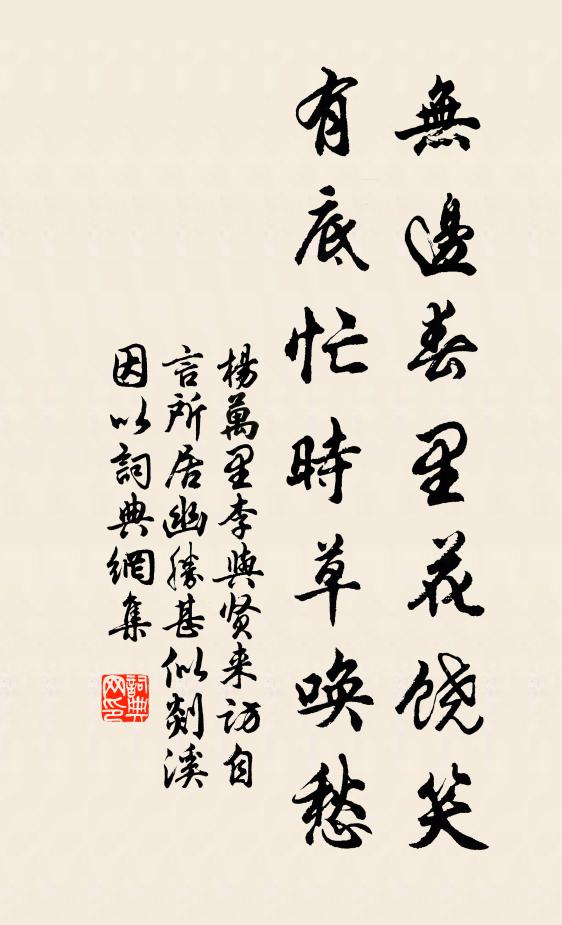 無邊春里花饒笑
有底忙時草喚愁
楊萬里李與贤来訪自
言所居幽勝甚似剡溪
因以詞典網集
詞典
网印